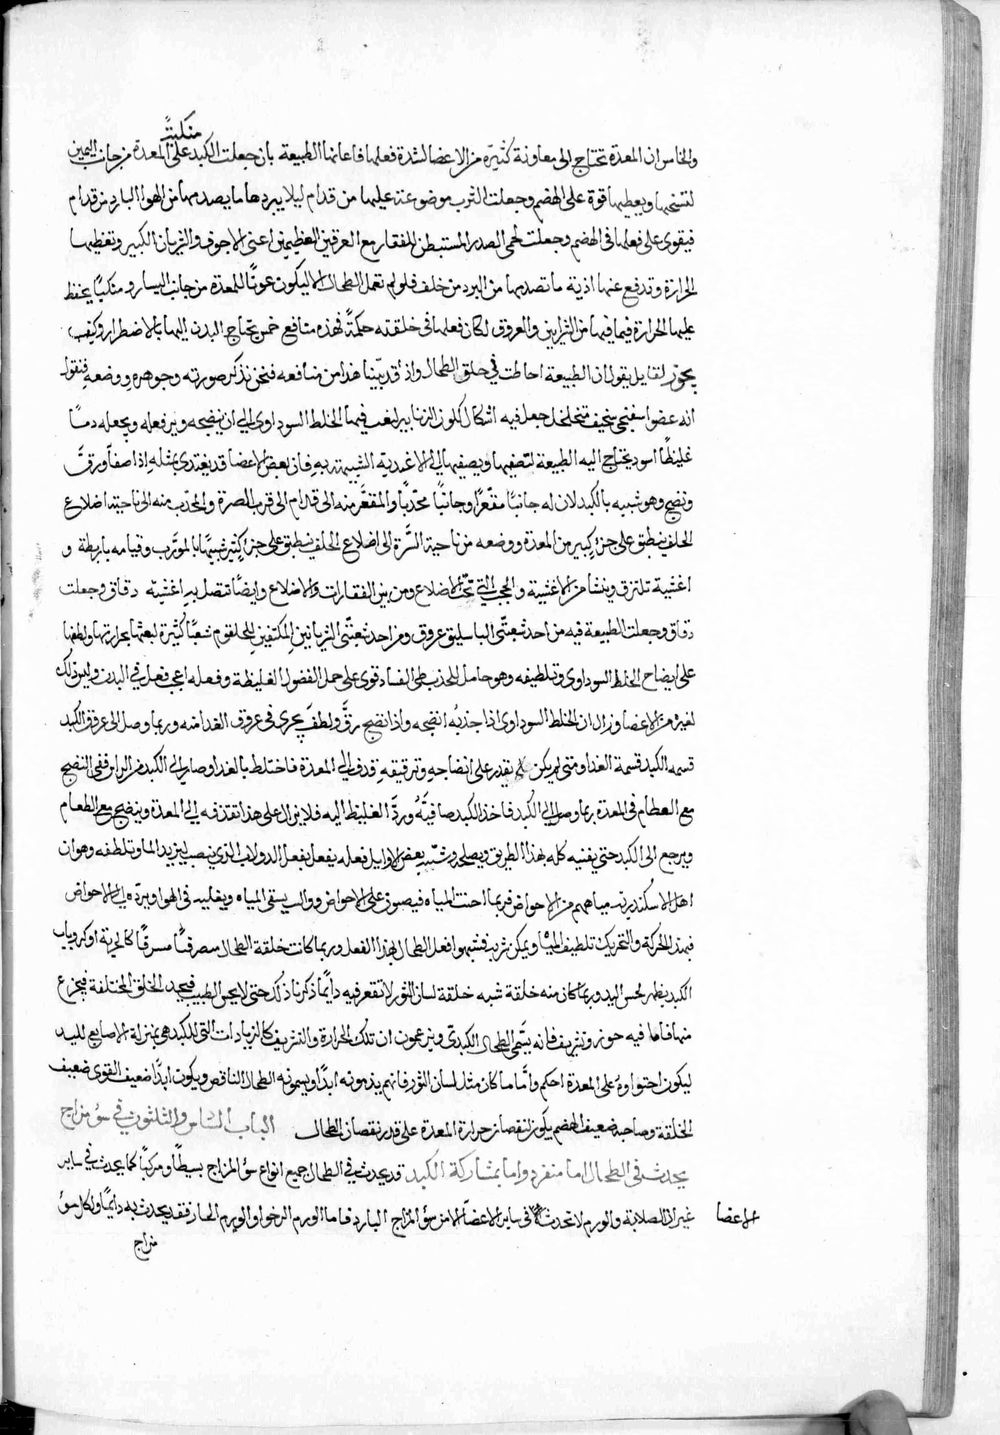 منكبةً
والخامس ان المعدة تحتاج الى معاونة كثيرة من الاعضا لشدة فعلها فاعانها الطبيعة بان جعلت الكبد على المعدة من جانب اليمين
لتسخنها ويعطيها قوة على الهضم وجعلت الثرب موضوعة عليها من قدام ليلا يبردها ما يصدمها من الهوا البارد من قدام
فيقوى على فعلها فى الهضم وجعلت لحمى الصدر المستبطن للفقار مع العرقين العظيمين اعنى الاجوف والشريان الكبير وتغطيها
الحرارة وتدفع عنها اذية ما تصدمها من البرد من خلف فلو لم تعمل الطحال الا ليكون عونًا للمعدة من جانب اليسار ومنكبًا يحفظ
عليها الحرارة فيما فيها من الشرايين والعروق لكان فعلها فى خلقته حكمةً فهذه منافع خمس يحتاج البدن اليها بالاضطرار وكيف
يجوز لقايل يقول ان الطبيعة احاطت في خلق الطحال واذ قد بيّنا هذا من منافعه فنحن نذكر صورته وجوهره ووضعه فنقول
انه عضو اسفنجى سخيف متخلخل جعل فيه اشكال ككون الزنابير لغب فيها الخلط السوداوى الى ان ينضجه ويرفعله ويجعله دمًا
غليظًا اسود يحتاج اليه الطبيعة لتصفيها ويصفيها الى الاغدية الشبيهة به فان بعض الاعضا قد يغتدى بمثله اذا صفا ورقّ
ونضج وهو شبيه بالكبد لان له جانبًا مقعّرًا وجانبًا محدّبًا والمقعّر منه الى قدام الى قرب الصرة والمحدّب منه الى ناحية اضلاع
الخلف ينطبق على جزء كبير من المعدة ووضعه من ناحية السّرة الى اضلاع الخلف ينطبق على جزء كثير شبيهًا بالمورّب وقيامه باربطة و
اغشية تلتزق وينشا من الاغشية والحجب التي تحت الاضلاع ومن بين الفقارات والاضلاع وايضًا تتصل به اغشية دقاق وجعلت
دقاق وجعلت الطبيعة فيه من احد شعبتى الباسليق عروق ومن احد شعبتى الشريانين المكتنفين للحلقوم شعبًا كثيرة لبعثها بحرارتها ولطفها
على ايضاح الخلط السوداوى وتلطيفه وهو حامل للجذب على الفساد قوى على حمل الفضول الغليظة وفعله اعجب فعل في البدن وليس ذلك
لغيره من الاعضا وزال ان الخلط السوداوى اذا جذبه انضجه واذا نضج رقّ ولطف يجرى فى عروق الغدا منه وربما وصل الى عروق الكبد
قسمه الكبد قسمة الغدا ومتى لم يكن يقدر على انضاجه وترقيقه قذف الى المعدة فاختلط بالغدا وصار الى الكبد من الراس ففى النضج
مع الطعام فى المعدة ربما وصل الى الكبد فاخذ الكبد صافيَهُ وردَّ الغليظ اليه فلا يزال على هذا تقذفه الى المعدة وينضج مع الطعام
ويرجع الى الكبد حتى يفنيه كله بهذا الطريق ويصلحه وشبّه بعض الاوايل فعله يفعل بفعل الدولاب الذى ينصب ليزيد الما وتلطفه وهو ان
اهل الاسكندرية مياههم من الاحواض فربما اجنت المياه فيصوق على الاحواض دواليب يسقى المياه ويقلبه فى الهوا ويردّه الى الاحواض
فبهذه الحركة والتحريك تلطيف المياه ويمكن شربه فشبهوا فعل الطحال بهذا الفعل وربما كانت خلقة الطحال مصرفًا مسرفًا كالحربة او كزوايب
الكبد يظهر لحس اليد وربما كان منه خلقة شبه خلقة لسان الثور لا تقعر فيه دايمًا ذكرنا ذلك حتى لا يحمق الطبيب فيجد الخلق المختلفة فيجزع
منها فاما فيه حوز وتشريف فانه يسمّى الطحال الكبدىّ ويزعمون ان تلك الحرارة والتشريف كالزيادات التى للكبد هى بمنزلة الاصابع لليد
ليكون احتواوهُ على المعدة احكم وامّا ما كان مثل لسان الثور فانهم يذمونه ابدًا ويسمونه الطحال الناقص ويكون ابدًا ضعيف القوى ضعيف
الخلقة وصاحبه ضعيف الهضم يكون نقصان حرارة المعدة على قدر نقصان الطحال الباب السادس والثلثون في سو مزاج
يحدث فى الطحال اما منفرد واما بمشاركة الكبد قد يحدث في الطحال جميع انواع سو المزاج بسيطًا ومركبًا كما يحدث في ساير
الاعضا غير ان الصلابة والورم لا تحدث فى ساير الاعضا الا من سو المزاج البارد فاما الورم الرخو او الورم الحار فقد يحدث به دايمًا ولكل سو
مزاج